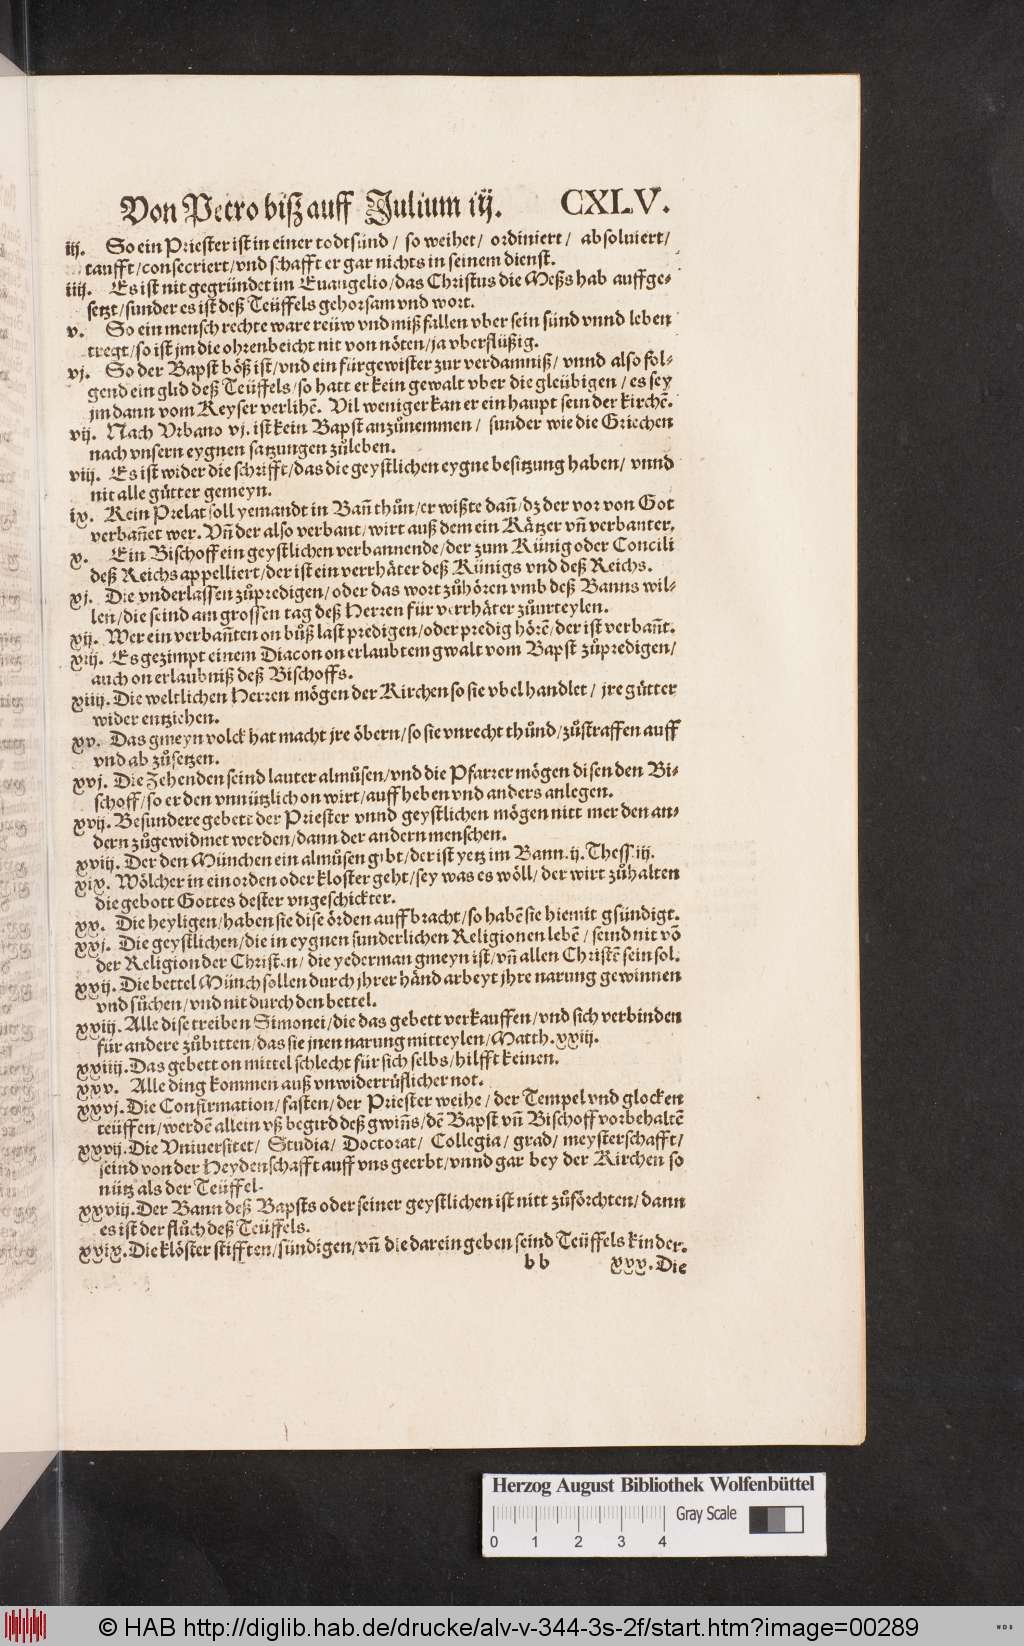 Von Petro biß auff Julium iij. CXLV.
iij. So ein Priester ist in einer todtsünd / so weihet / ordiniert / absoluiert /
taufft / consecriert / vnd schafft er gar nichts in seinem dienst.
iiij. Es ist nit gegründet im Euangelio / das Christus die Meßs hab auffge-
setzt / sunder es ist deß Teüffels gehorsam vnd wort.
v. So ein mensch rechte ware reüw vnd mißfallen vber sein sünd vnnd leben
tregt / so ist jm die ohrenbeicht nit von nöten / ja vberflüßig.
vj. So der Bapst böß ist / vnd ein fürgewister zur verdamniß / vnnd also fol-
gend ein glid deß Teüffels / so hatt er kein gewalt vber die gleübigen / es sey
jm dann vom Keyser verlihẽ. Vil weniger kan er ein haupt sein der kirchẽ.
vij. Nach Vrbano vj. ist kein Bapst anzůnemmen / sunder wie die Griechen
nach vnsern eygnen satzungen zůleben.
viij. Es ist wider die schrifft / das die geystlichen eygne besitzung haben / vnnd
nit alle gütter gemeyn.
ix. Kein Prelat soll yemandt in Bañ thůn / er wißte dañ / dz der vor von Got
verbañet wer. Vñ der also verbant / wirt auß dem ein Kätzer vñ verbanter.
x. Ein Bischoff ein geystlichen verbannende / der zum Künig oder Concili
deß Reichs appelliert / der ist ein verrhäter deß Künigs vnd deß Reichs.
xj. Die vnderlassen zůpredigen / oder das wort zůhören vmb deß Banns wil-
len / die seind am grossen tag deß Herren für verrhäter zůurteylen.
xij. Wer ein verbañten on bůß last predigen / oder predig hörẽ / der ist verbañt.
xiij. Es gezimpt einem Diacon on erlaubtem gwalt vom Bapst zůpredigen /
auch on erlaubniß deß Bischoffs.
xiiij. Die weltlichen Herren mögen der Kirchen so sie vbel handlet / jre gütter
wider entziehen.
xv. Das gmeyn volck hat macht jre öbern / so sie vnrecht thůnd / zůstraffen auff
vnd ab zůsetzen.
xvj. Die Zehenden seind lauter almůsen / vnd die Pfarrer mögen disen den Bi-
schoff / so er den vnnützlich on wirt / auffheben vnd anders anlegen.
xvij. Besundere gebett der Priester vnnd geystlichen mögen nitt mer den an-
dern zůgewidmet werden / dann der andern menschen.
xviij. Der den München ein almůsen gibt / der ist yetz im Bann. ij. Thess. iij.
xix. Wölcher in ein orden oder kloster geht / sey was es wöll / der wirt zůhalten
die gebott Gottes dester vngeschickter.
xx. Die heyligen / haben sie dise örden auffbracht / so habẽ sie hiemit gsündigt.
xxj. Die geystlichen / die in eygnen sunderlichen Religionen lebẽ / seind nit võ
der Religion der Christen / die yederman gmeyn ist / vñ allen Christẽ sein sol.
xxij. Die bettel Münch sollen durch jhrer händ arbeyt jhre narung gewinnen
vnd sůchen / vnd nit durch den bettel.
xxiij. Alle dise treiben Simonei / die das gebett verkauffen / vnd sich verbinden
für andere zůbitten / das sie jnen narung mitteylen / Matth. xxiij.
xxiiij. Das gebett on mittel schlecht für sich selbs / hilfft keinen.
xxv. Alle ding kommen auß vnwiderrůflicher not.
xxvj. Die Confirmation / fasten / der Priester weihe / der Tempel vnd glocken
teüffen / werdẽ allein vß begird deß gwiñs / dẽ Bapst vñ Bischoff vorbehaltẽ
xxvij. Die Vniuersitet / Studia / Doctorat / Collegia / grad / meysterschafft /
seind von der Heydenschafft auff vns geerbt / vnnd gar bey der Kirchen so
nütz als der Teüffel.
xxviij. Der Bann deß Bapsts oder seiner geystlichen ist nitt zůförchten / dann
es ist der flůch deß Teüffels.
xxix. Die klöster stifften / sündigen / vñ die darein geben seind Teüffels kinder.
bb xxx. Die
Herzog August Bibliothek Wolfenbüttel
Gray Scale
0 1 2 3 4
© HAB http://diglib.hab.de/drucke/alv-v-344-3s-2f/start.htm?image=00289